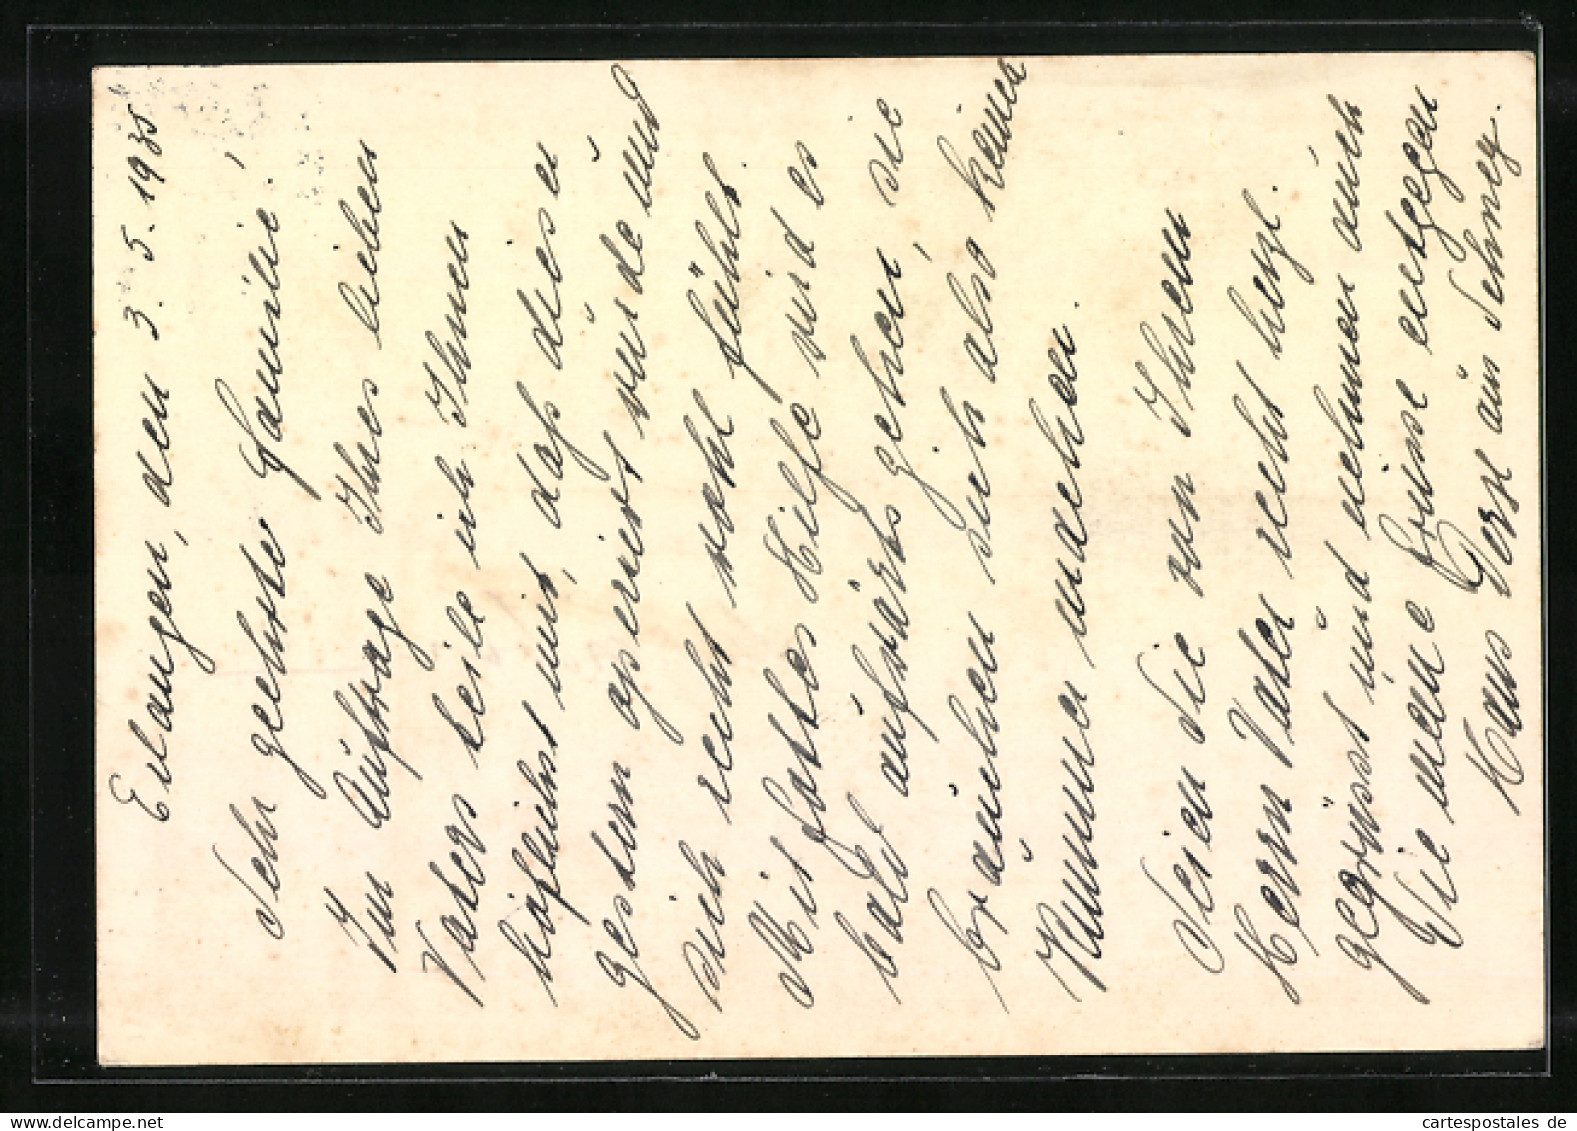 Erlangen, den 3. 5. 1935
Sehr geehrte Familie!
Im Auftrage Ihres lieben
Vaters teile ich Ihnen
höflichst mit, daß dieser
gestern operiert würde und
sich recht wohl fühlt.
Mit Gottes Hilfe wird es
bald aufwärts gehen, sie
bräuchen sich also keinen
Kummer machen.
Seien Sie von Ihrem
Herrn Vater recht herzl.
gegrüsst und nehmen auch
Sie meine Grüsse entgegen
Hans aus Schney.
www.cartespostales.de